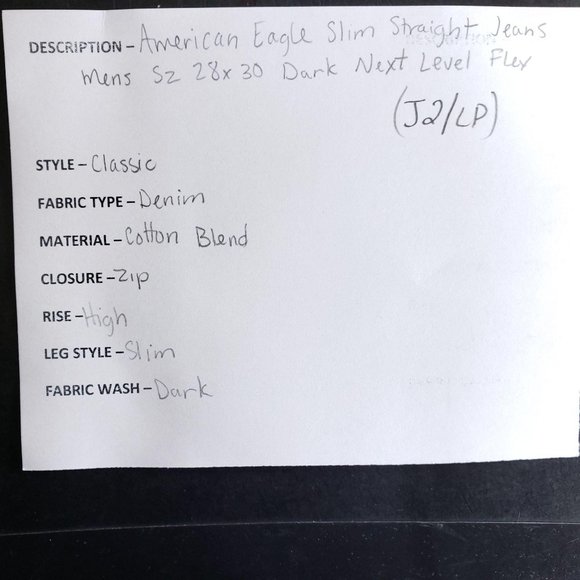 DESCRIPTION – American Eagle Slim Straight Jeans
Mens Sz 28x30 Dark Next Level Flex
(J2/LP)
STYLE – Classic
FABRIC TYPE – Denim
MATERIAL – Cotton Blend
CLOSURE – Zip
RISE – High
LEG STYLE – Slim
FABRIC WASH – Dark